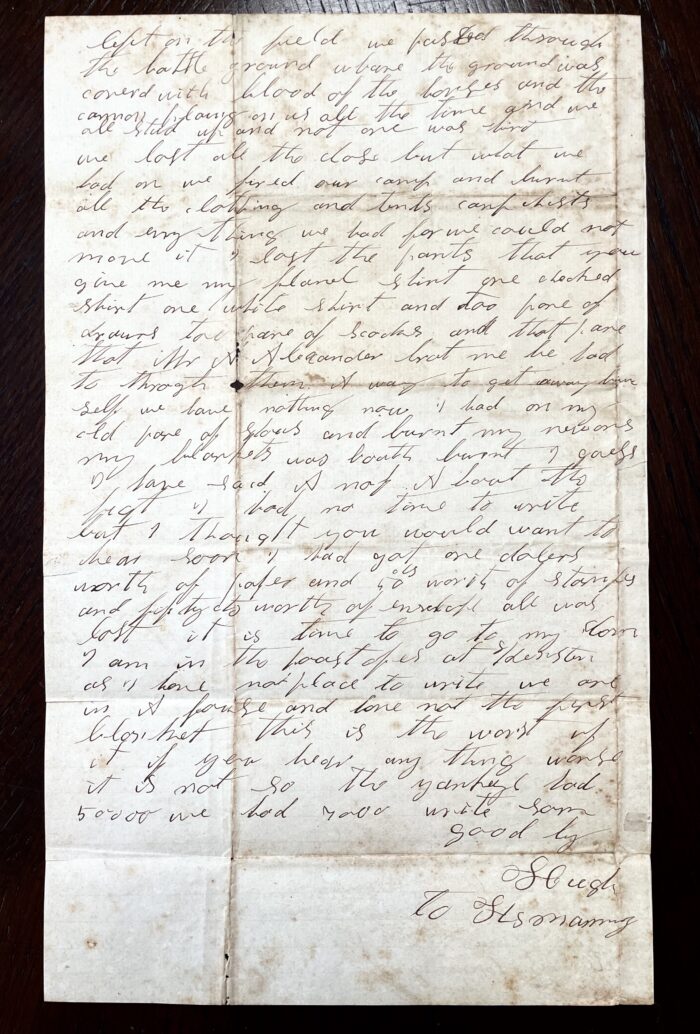 left on the field we passed through
the battle ground whare the ground was
coverd with blood of the horses and the
cannon playing on us all the time and we
all stud up and not one was hirt
we lost all the close but what we
had on we fired our camp and burnt
all the clothing and tents camp chists
and ery thing we had for we could not
move it I lost the pants that you
give me my flanel shirt one checked
shirt one white shirt and too pare of
drours too pare of socks and that pare
that Mr A Alexander brat me he had
to through them A way to get away him
self we have nothing now I had on my
old pare of shoas and burnt my new ons
my blankets was boath burnt I guess
I have said A nof A bout the
fight I had no time to write
but I thought you would want to
hear soon I had got one dolers
worth of paper and 50 cts worth of stamps
and fifty cts worth of envelope all was
lost it is time to go to my
I am in the poast ofes at
as I have no place to write we are
in A house and have not the first
blanket this is the worst of
it if you hear any thing worse
it is not so the yankeys had
50000 we had 7000 write soon
good by
S Pugh
To